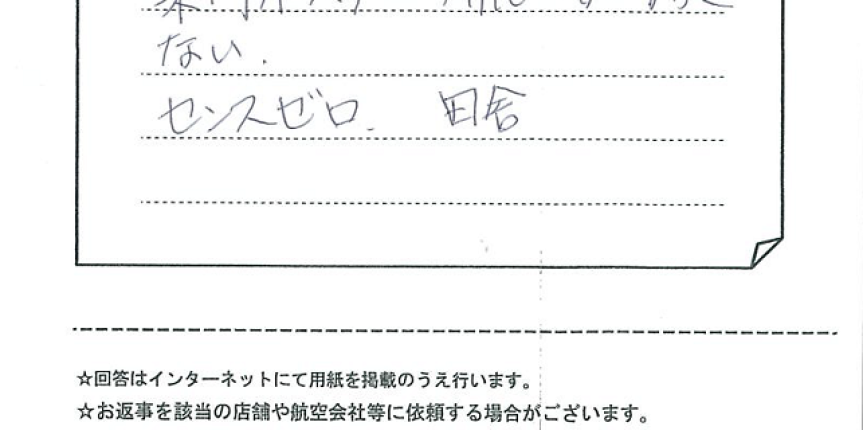 ない.
センスゼロ. 田舎
☆回答はインターネットにて用紙を掲載のうえ行います。
☆お返事を該当の店舗や航空会社等に依頼する場合がございます。